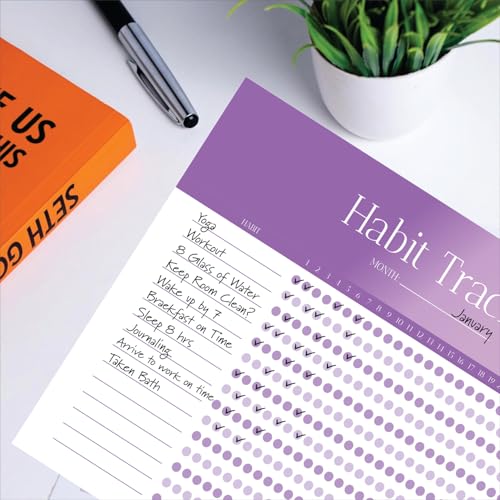 E US
THIS
SETH GO
Habit Trac
MONTH:
January
HABIT
1 2 3 4 5 6 7 8 9 10 11 12 13 14 15 16 17 18 19
Yoga
Workout
8 Glass of Water
Keep Room Clean?
Wake up by 7
Breakfast on Time
Sleep 8 hrs
Journaling
Arrive to work on time
Taken Bath